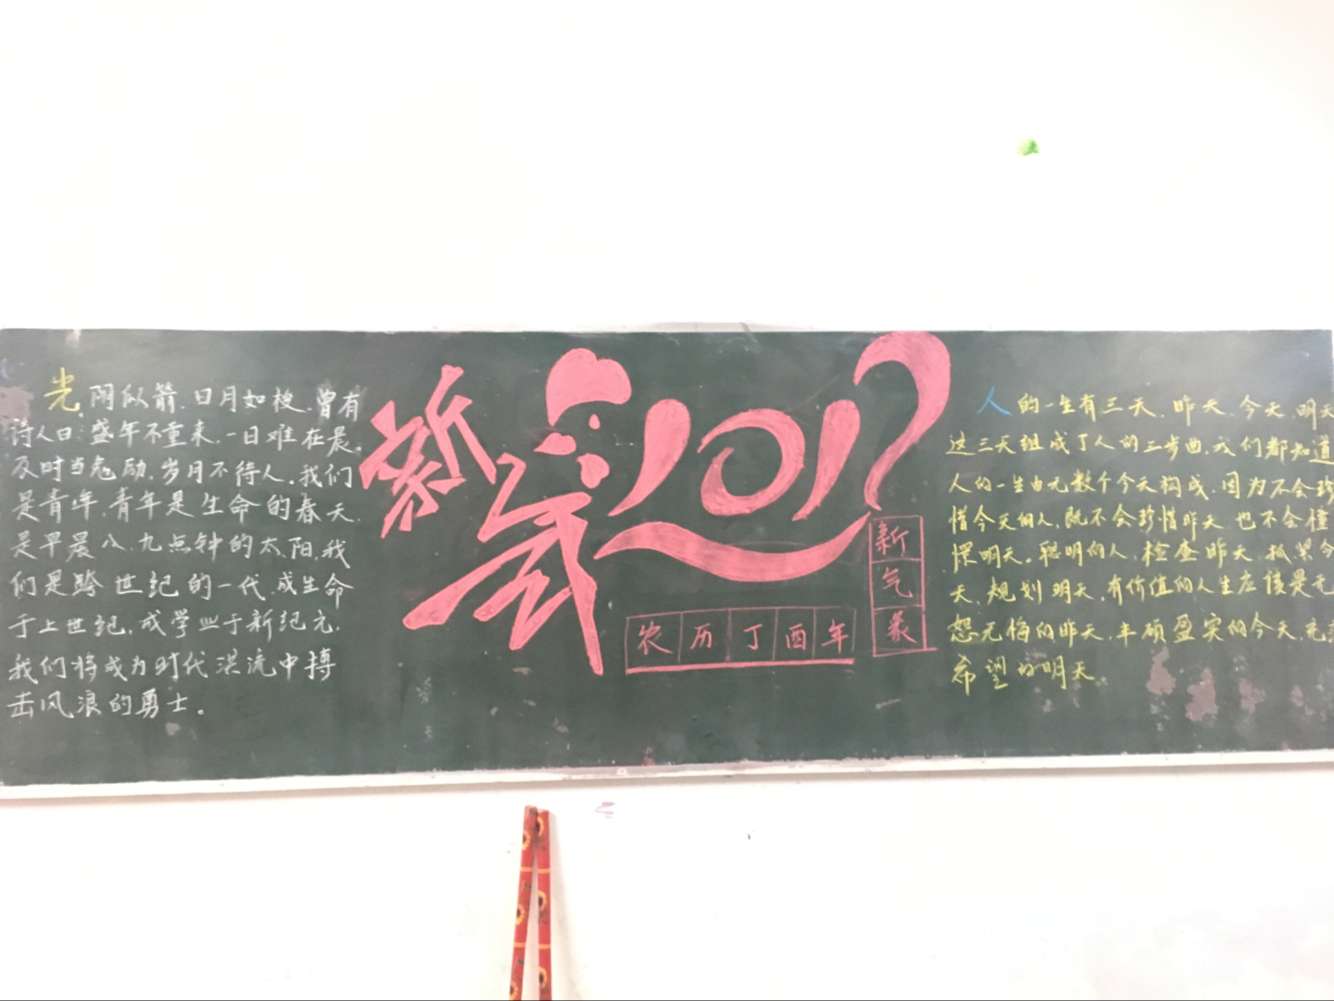 光阴似箭,日月如梭,曾有
诗人曰:盛年不重来,一日难在晨。
及时当勉励,岁月不待人。我们
是青年,青年是生命的春天,
是早晨八、九点钟的太阳,我
们是跨世纪的一代,成生命
于上世纪,成学业于新纪元,
我们将成为时代洪流中搏
击风浪的勇士。
新
2017
农历丁酉年
新气象
人的一生有三天,昨天,今天,明天
这三天组成了人的三步曲,我们都知道
人的一生由无数个今天构成,因为不会珍
惜今天的人,既不会珍惜昨天,也不会憧
憬明天。聪明的人,检查昨天,抓紧今
天,规划明天,有价值的人生应该是无
怨无悔的昨天,丰硕盈实的今天,充满
希望的明天。